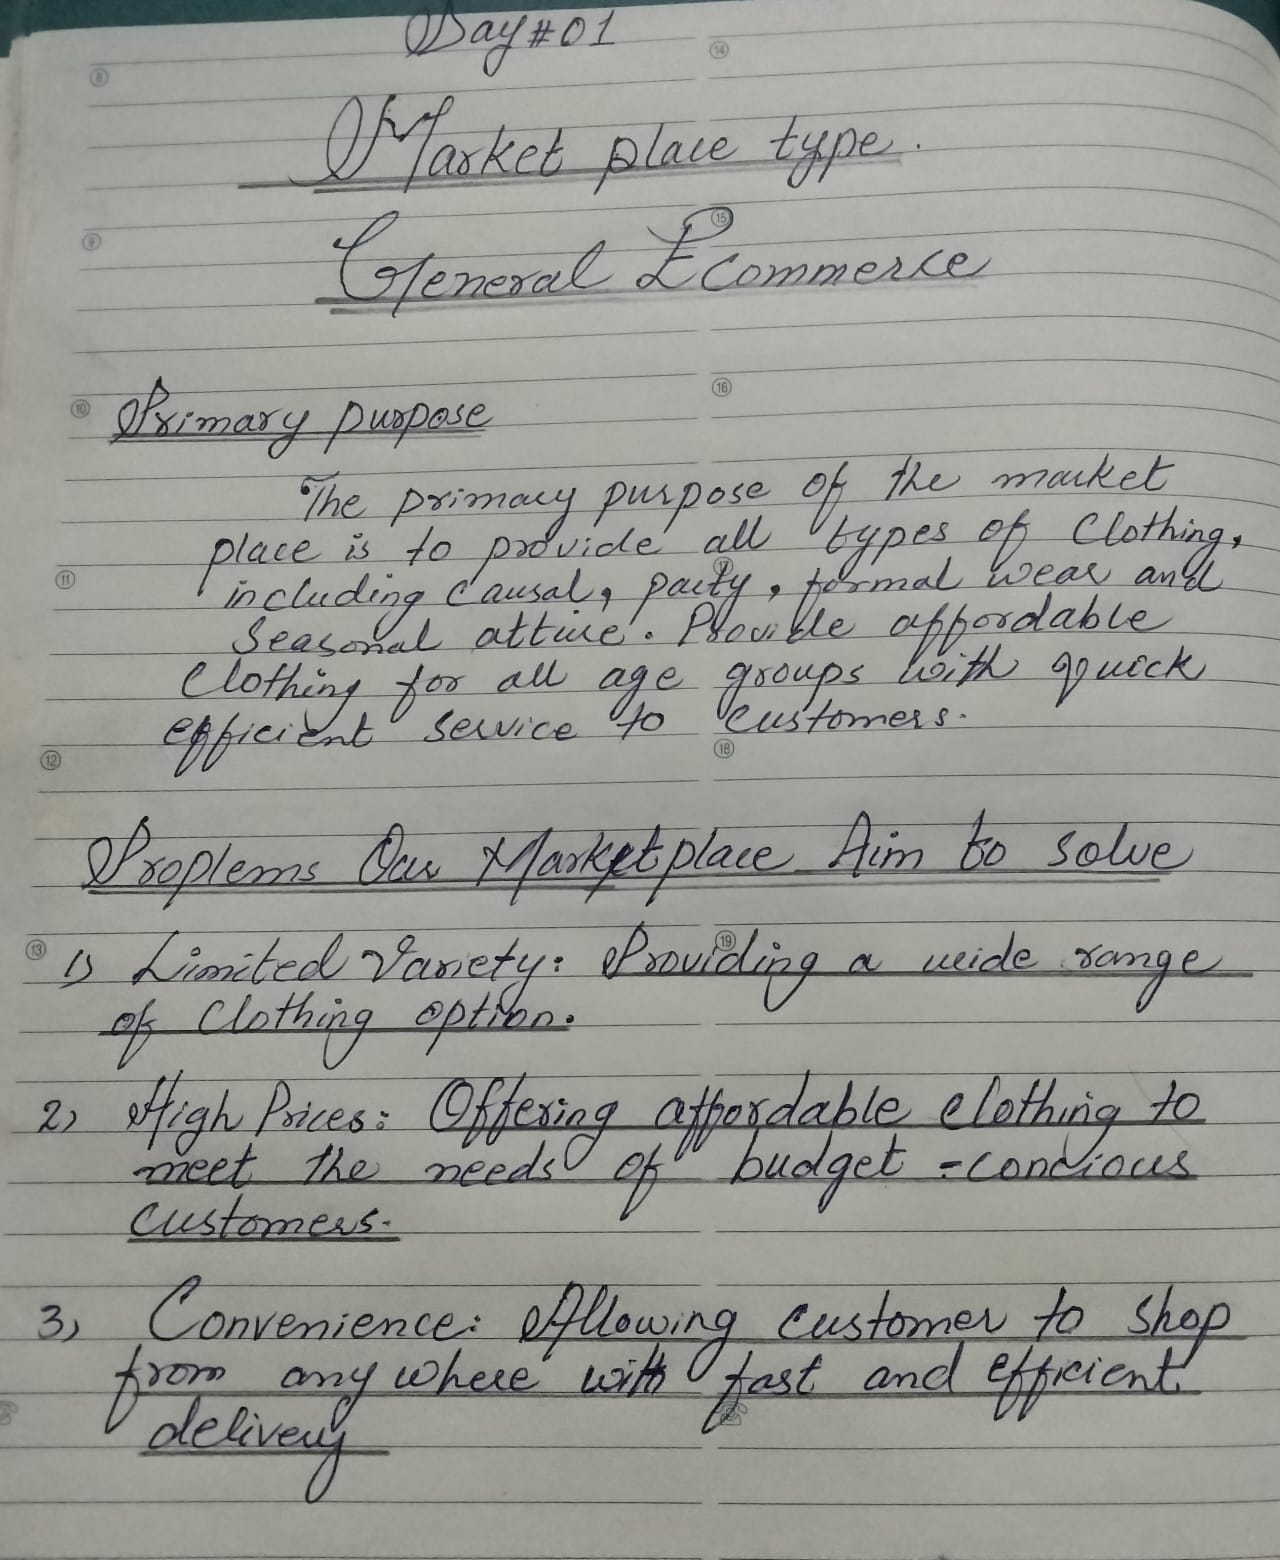 Day#01
Market place type.
General Ecommerce
Primary purpose
The primary purpose of the market
place is to provide all types of Clothing,
including Causal, party, formal wear and
Seasonal attire. Provide affordable
Clothing for all age groups with quick
efficient service to customers.
Proplems Our Marketplace Aim to solve
1) Limited Variety: Providing a wide range
of Clothing option.
2) High Prices: Offering affordable clothing to
meet the needs of budget-concious
customers.
3) Convenience: Allowing customer to shop
from any where with fast and efficient
delivery
8
14
9
15
10
16
11
12
18
13
19